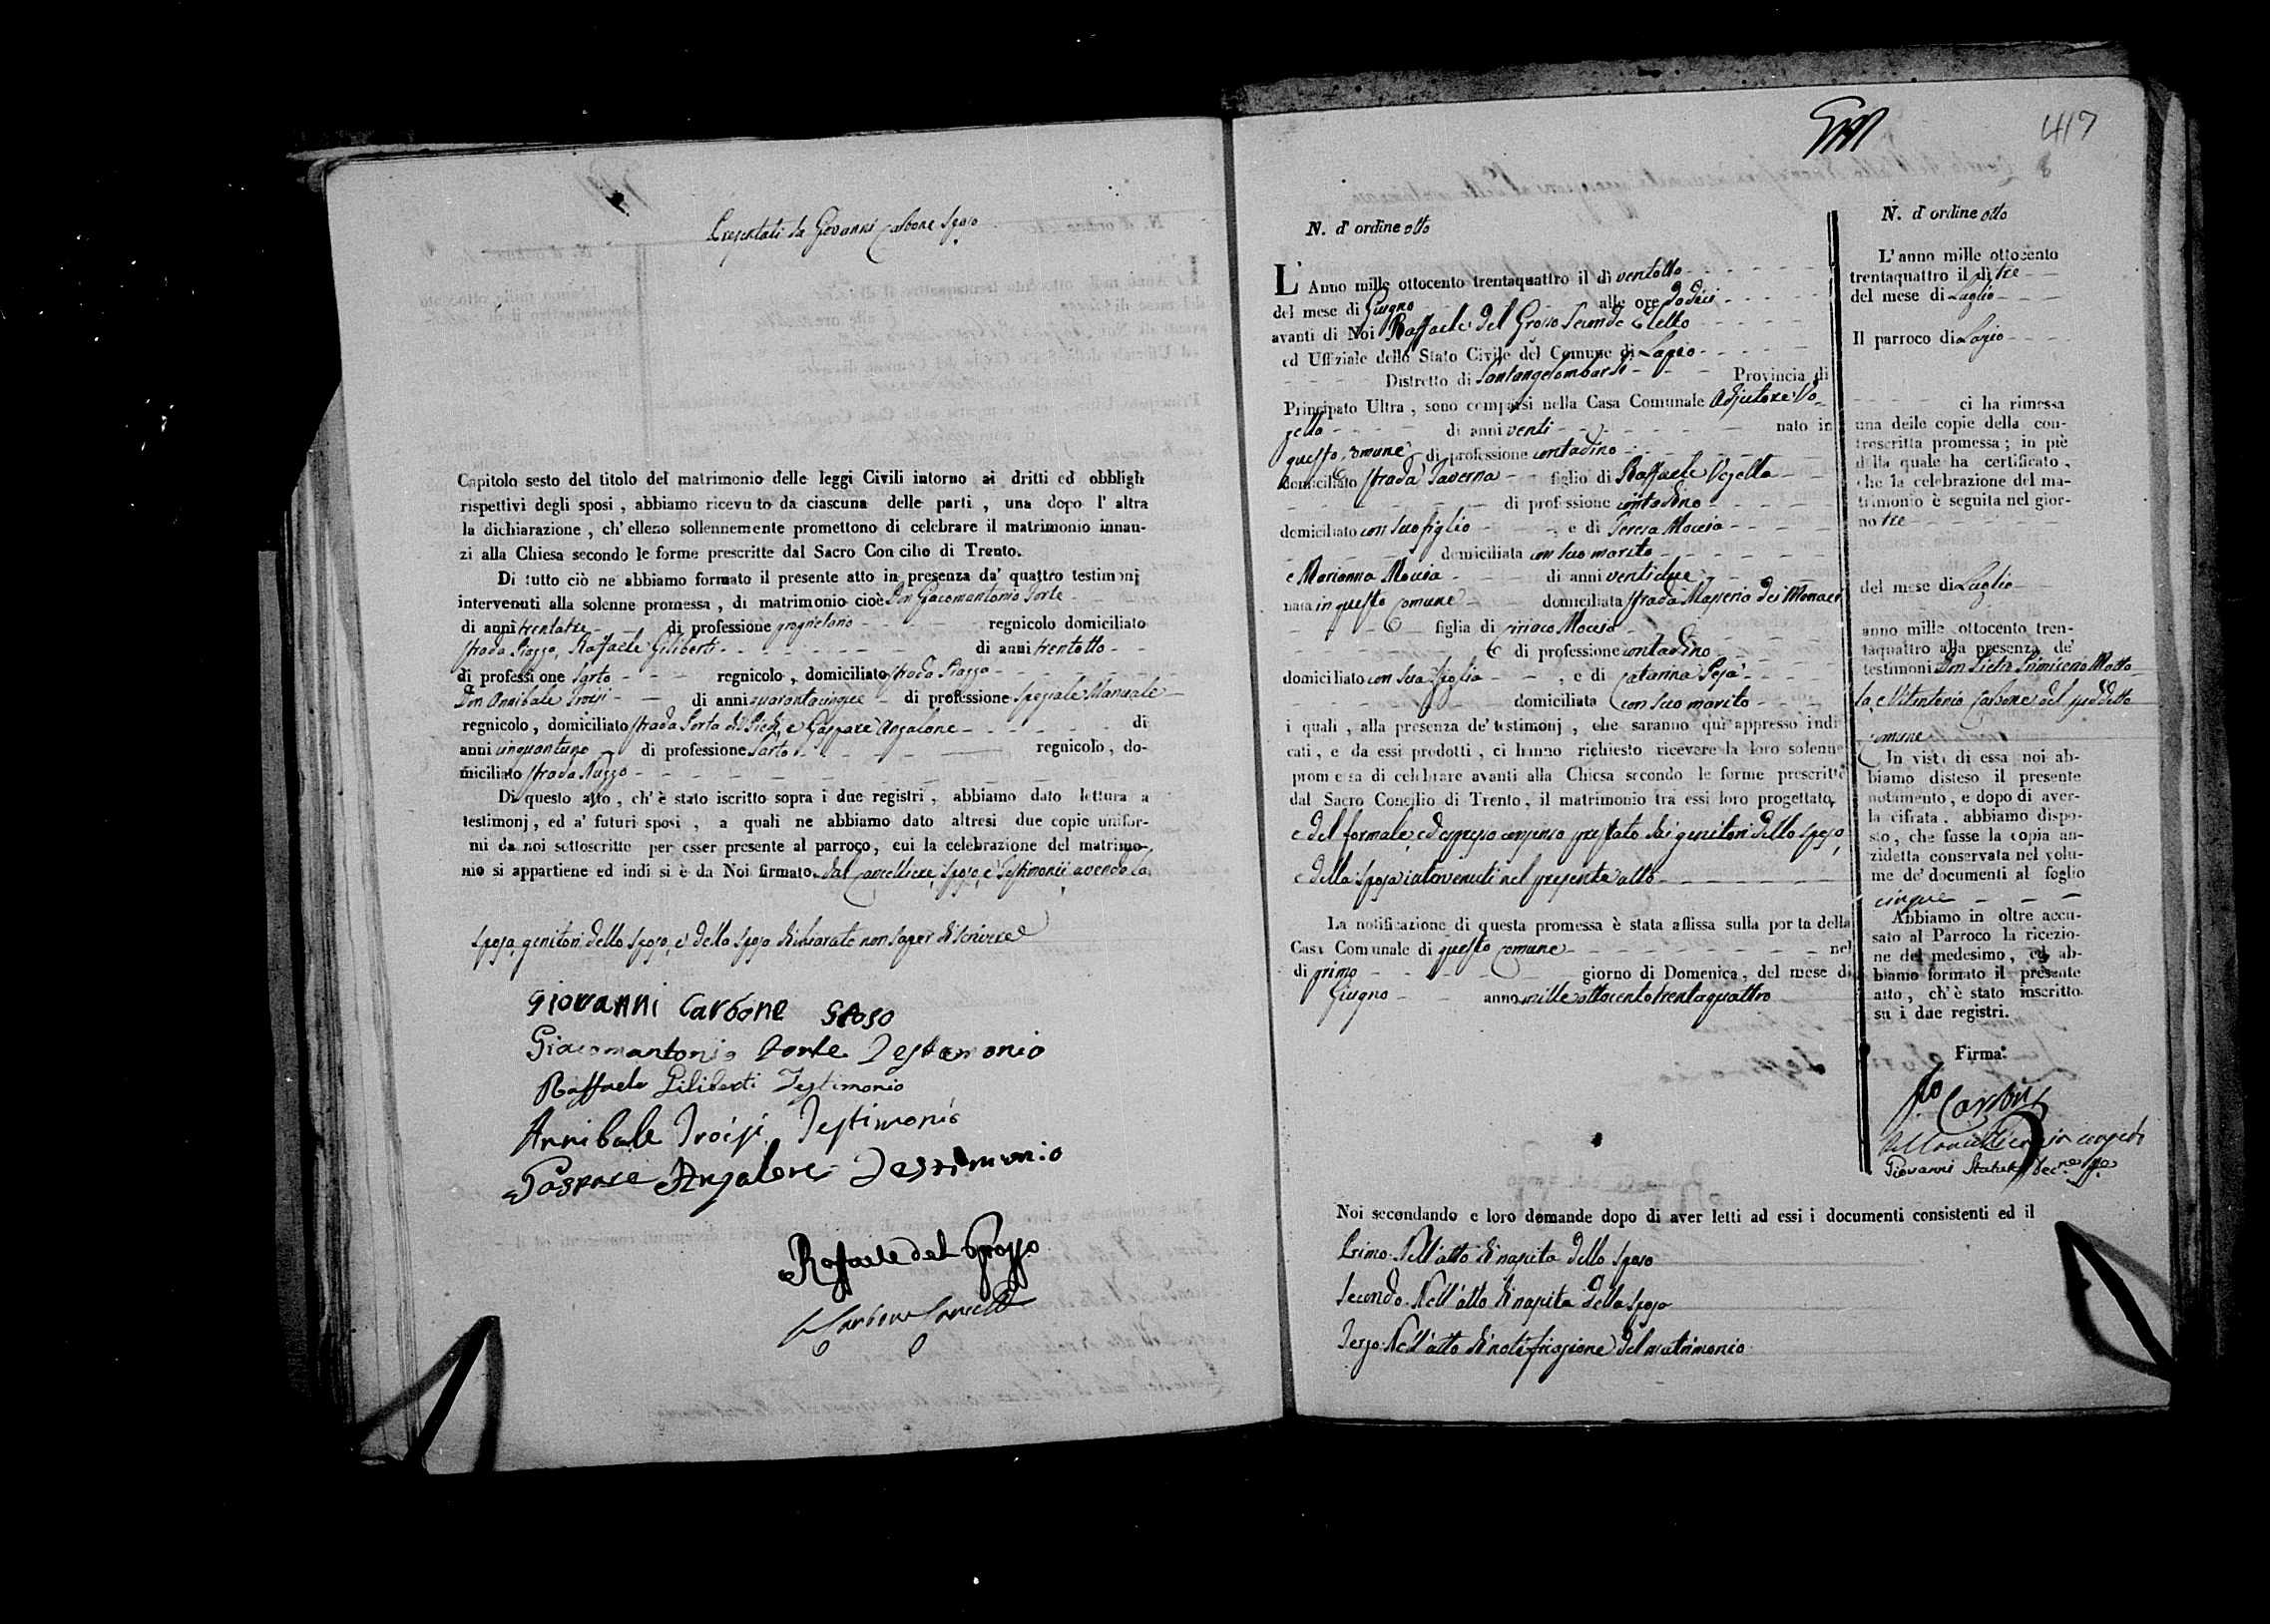 Presentati da Giovanni Carbone Sposo
Capitolo sesto del titolo del matrimonio delle leggi Civili intorno ai dritti ed obblighi
rispettivi degli sposi , abbiamo ricevuto da ciascuna delle parti , una dopo l' altra
la dichiarazione , ch' elleno sollennemente promettono di celebrare il matrimonio innan-
zi alla Chiesa secondo le forme prescritte dal Sacro Concilio di Trento.
Di tutto ciò ne abbiamo formato il presente atto in presenza da' quattro testimonj
intervenuti alla solenne promessa , di matrimonio cioè Don Giacomantonio Forte
di anni trentatre di professione proprietario regnicolo domiciliato
strada Piazza, Raffaele Giliberti di anni trentotto
di professione Sarto regnicolo , domiciliato strada Piazza
Don Annibale Troisi di anni quarantacinque di professione Speziale Manuale
regnicolo , domiciliato strada Porta di Piedi, e Gaspare Angalone di
anni cinquantuno di professione Sarto regnicolo , do-
miciliato strada Piazza
Di questo atto , ch' è stato iscritto sopra i due registri , abbiamo dato lettura a
testimonj , ed a' futuri sposi , a quali ne abbiamo dato altresi due copie unifor-
mi da noi sottoscritte per esser presente al parroco, cui la celebrazione del matrimo-
nio si appartiene ed indi si è da Noi firmato, dal Cancelliere, Sposo, e Testimonii avendo la
sposa, genitori dello sposo, e della sposa dichiarato non saper di scrivere
Giovanni Carbone sposo
Giacomantonio Forte Testimonio
Raffaele Giliberti Testimonio
Annibale Troisi Testimonio
Gaspare Angalone Testimonio
Raffaele del Grosso
417
N. d' ordine otto
L' Anno mille ottocento trentaquattro il di ventotto
del mese di Giugno alle ore dodici
avanti di Noi Raffaele del Grosso Secondo Eletto
ed Uffiziale dello Stato Civile del Comune di Lapio
Distretto di Santangelombardi Provincia di
Principato Ultra , sono comparsi nella Casa Comunale Adjutore Vo-
zella di anni venti nato in
questo comune di professione contadino
domiciliato strada Taverna figlio di Raffaele Vozella
di professione contadino
domiciliato con suo figlio , e di Teresa Moccia
domiciliata con suo marito
e Marianna Moccia di anni ventidue
nata in questo comune domiciliata strada Masseria dei Monaci
figlia di Ciriaco Moccia
di professione contadino
domiciliato con sua figlia , e di Catarina Pepà
domiciliata con suo marito
i quali , alla presenza de' testimonj , che saranno qui appresso indi
cati , e da essi prodotti , ci hanno richiesto ricevere la loro solenne
promessa di celebrare avanti alla Chiesa secondo le forme prescritte
dal Sacro Concilio di Trento, il matrimonio tra essi loro progettato,
e del formale, ed espresso consenso prestato dai genitori dello sposo,
e della sposa intervenuti nel presente atto
La notificazione di questa promessa è stata affissa sulla porta della
Casa Comunale di questo comune nel
di primo giorno di Domenica, del mese di
Giugno anno mille ottocento trentaquattro
N. d' ordine otto
L' anno mille ottocento
trentaquattro il di tre
del mese di Luglio
Il parroco di Lapio
ci ha rimessa
una delle copie della con-
troscritta promessa ; in piè
della quale ha certificato ,
che la celebrazione del ma-
trimonio è seguita nel gior-
no tre
del mese di Luglio
anno mille ottocento tren-
taquattro alla presenza de'
testimoni Don Pietro Primicerio Motto
la, e Vitantonio Carbone del suddetto
comune
In vista di essa noi ab-
biamo disteso il presente
notamento , e dopo di aver-
la cifrata. abbiamo dispo-
sto , che fusse la copia an-
zidetta conservata nel volu-
me de' documenti al foglio
cinque
Abbiamo in oltre accu-
sato al Parroco la ricezio-
ne del medesimo , ed ab-
biamo formato il presente
atto , ch' è stato inscritto
su i due registri.
Firma:
Giovanni
Noi secondando e loro domande dopo di aver letti ad essi i documenti consistenti ed il
Primo. Nell'atto di nascita dello sposo
Secondo. Nell'atto di nascita della sposa
Terzo. Nell'atto di notificazione del matrimonio